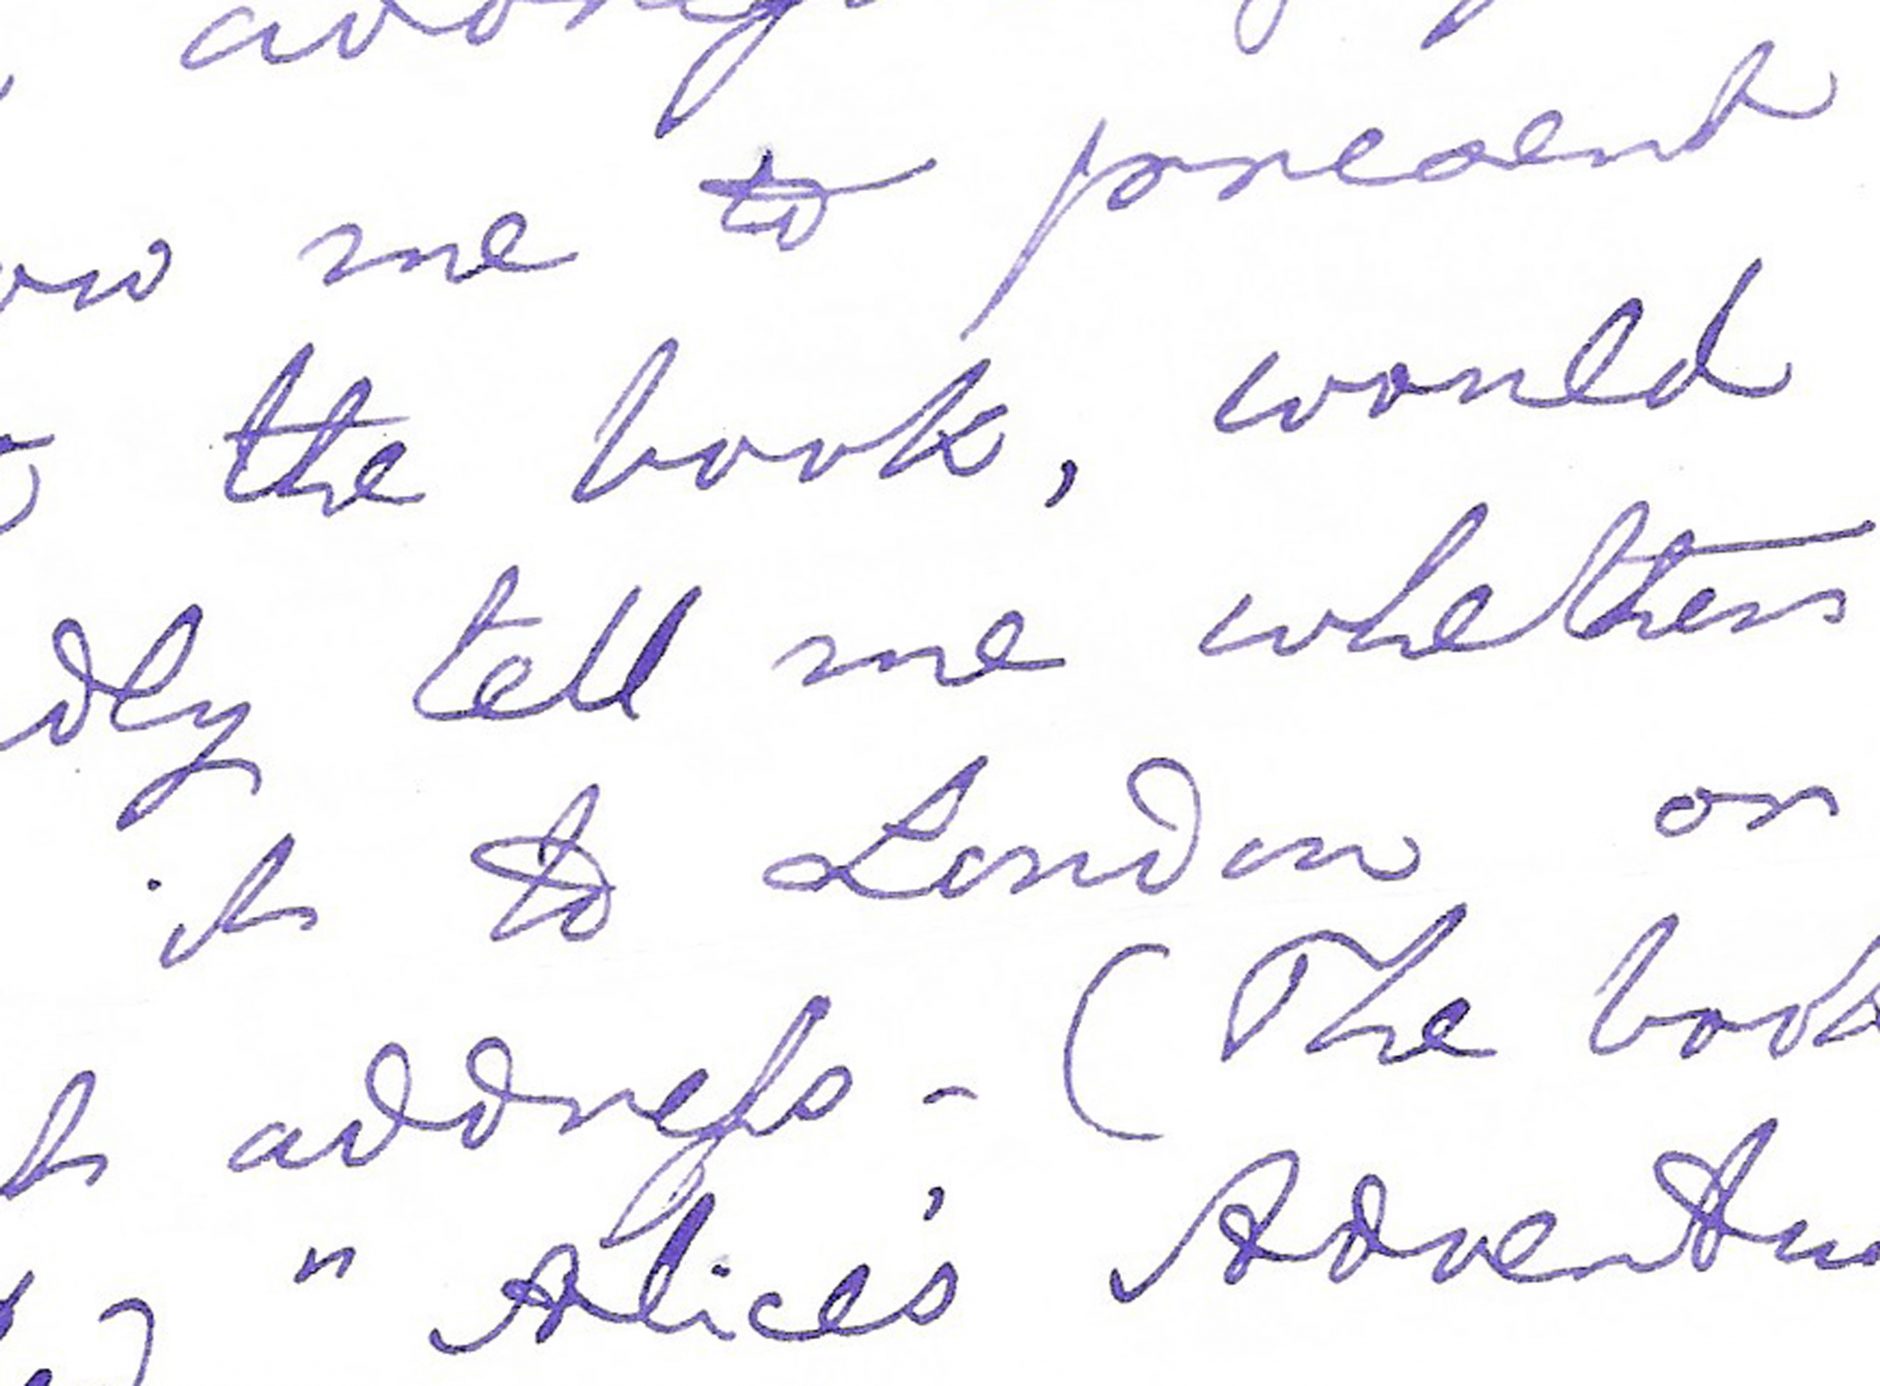 me to present
the book, would
tell me whether
it to London or
address - (The book
" Alice's Adventu